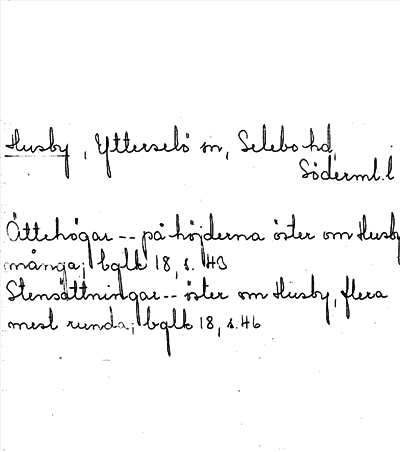 Husby, Ytterselö sn, Selebo hd,
Söderml. l
Ättehögar -- på höjderna öster om Husby
många; bglk 18, s. 43
Stensättningar -- öster om Husby, flera
mest runda; bglk 18, s. 46